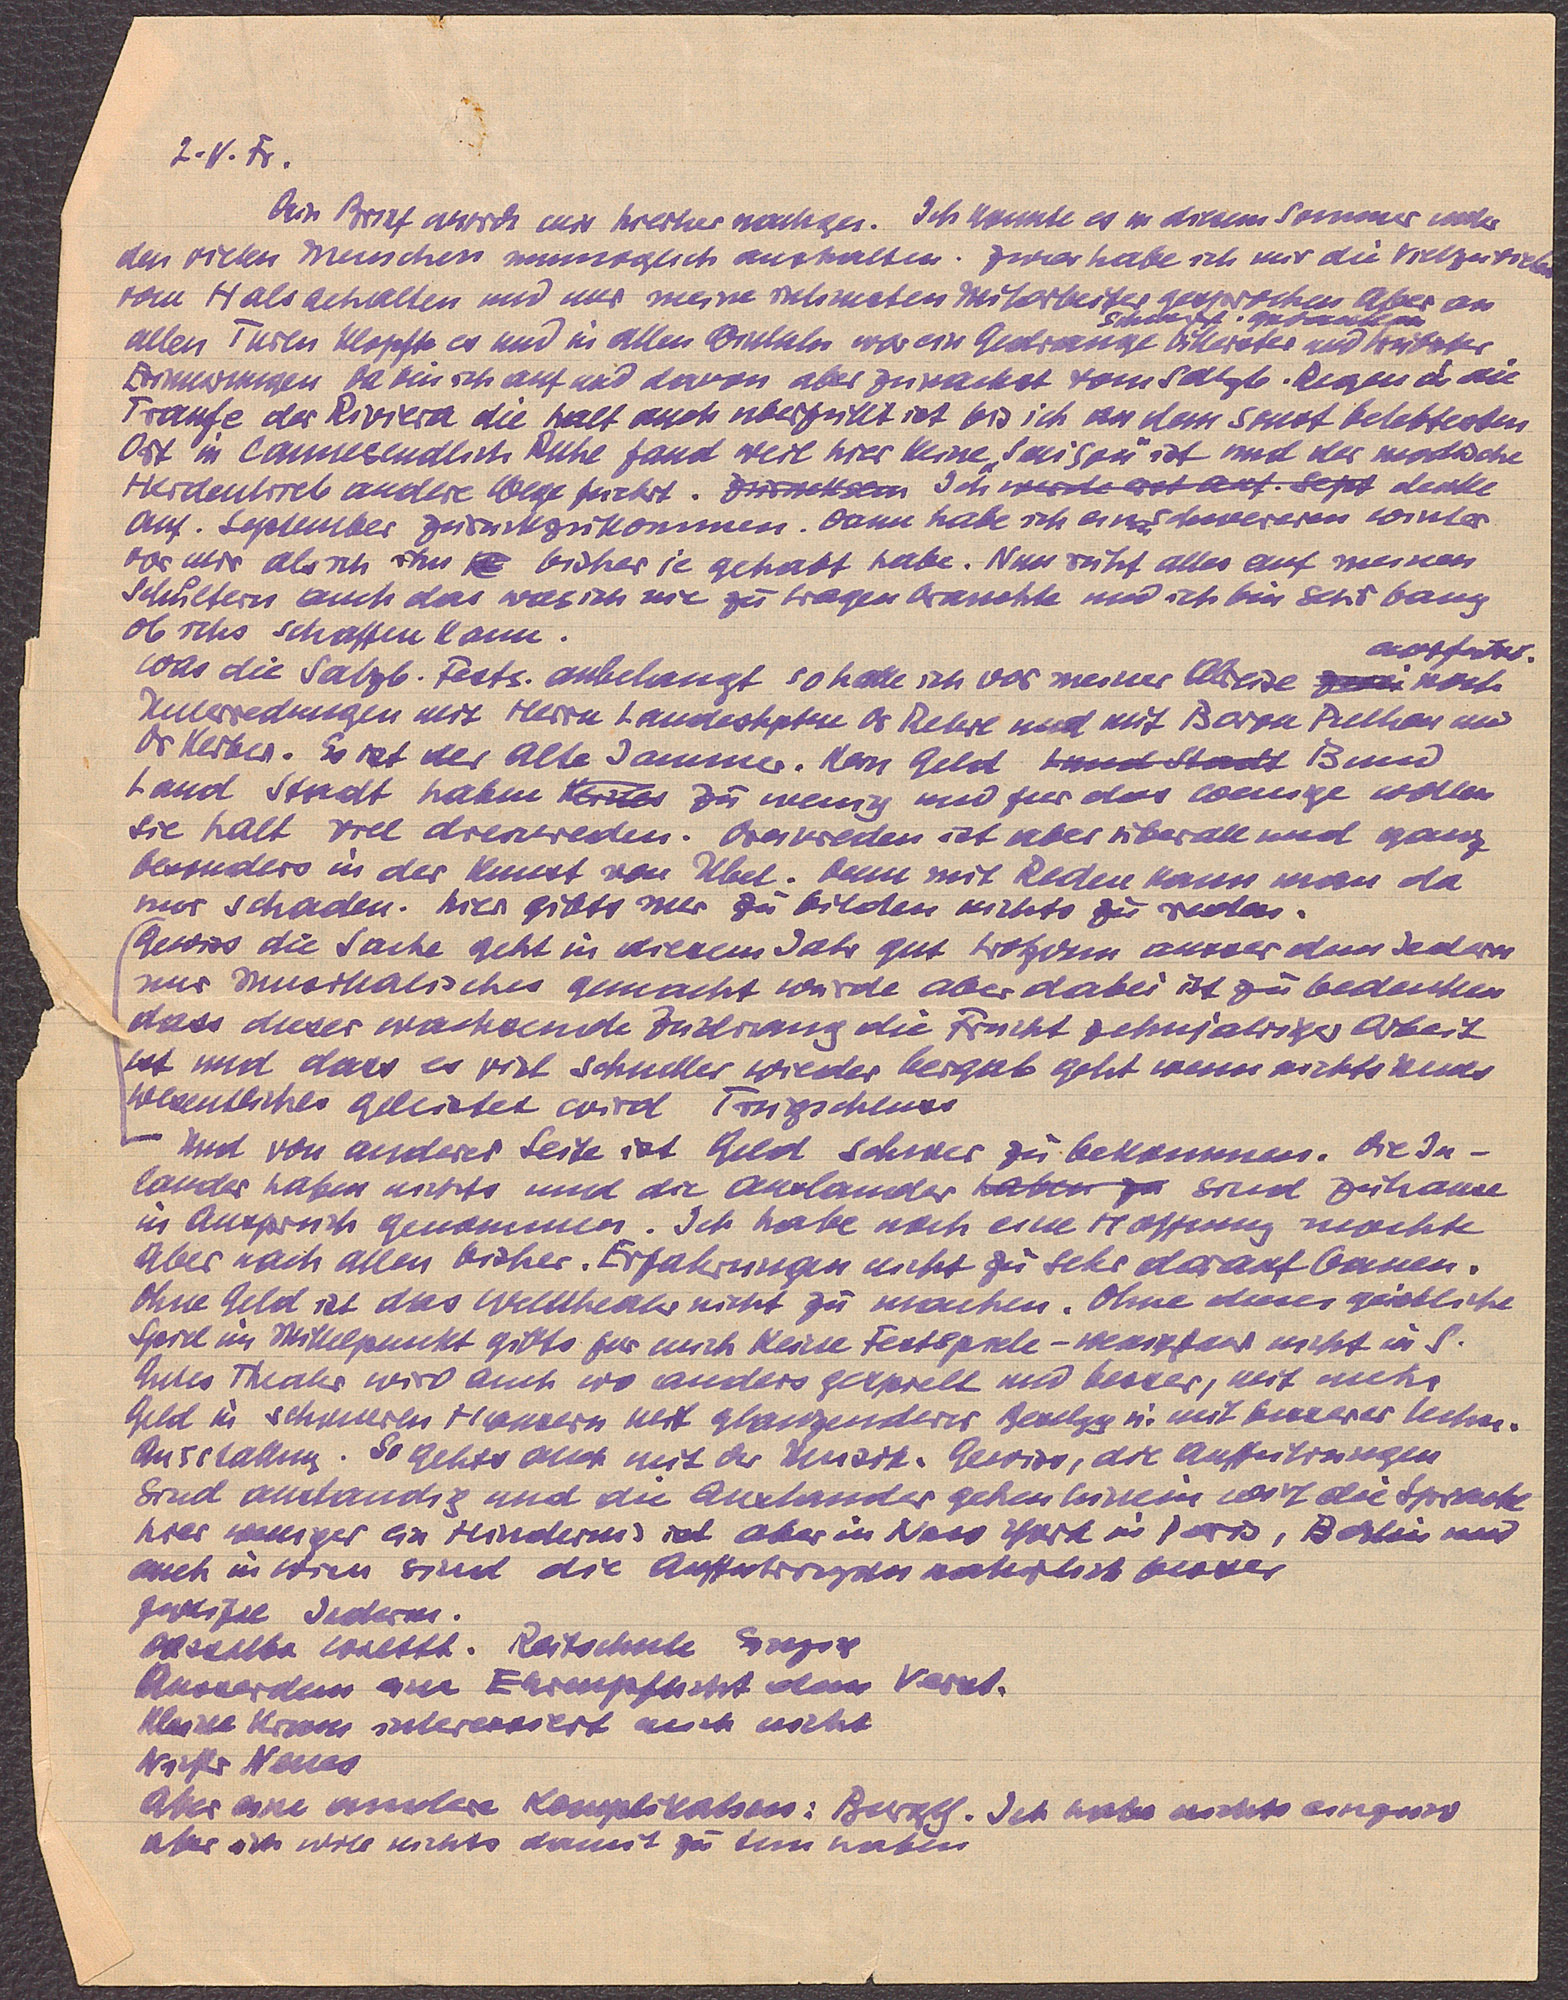 L. V. Fr.
Dein Brief wurde mir hierher nachges. Ich konnte es in diesem Sommer unter
den vielen Menschen unmoglich aushalten. Zwar habe ich mir die Vielzuvielen
vom Hals gehalten und nur meine intimsten Mitarbeiter gesprochen Aber an
allen Turen klopfte es und in allen war ein Gedrange und
Erinnerungen Da bin ich auf und davon aber zunachst vom Salzb. Regen in die
Traufe der Riviera die halt auch uberfullt ist bis ich an dem sonst belebtesten
Ort in Cannes endlich Ruhe fand weil hier keine „Saison" ist und der modische
Herdentrieb andere Wege fuhrt. Ich werde erst Anf. Sept denke
Anf. September zuruckzukommen. Dann habe ich einen schwereren Winter
vor mir als ich ihn bisher je gehabt habe. Nun ruht alles auf meinen
Schultern auch das was ich nie zu tragen brauchte und ich bin sehr bang
ob ichs schaffen kann.
ausfuhr.
Was die Salzb. Fests. anbelangt so hatte ich vor meiner Abreise noch
Unterredungen mit Herrn Landeshptm Dr Rehrl und mit Baron Puthon und
Dr Kerber. Es ist der alte Jammer. Kein Geld Land Stadt Bund
Land Stadt haben keines zu wenig und fur das wenige wollen
sie halt viel dreinreden. Dreinreden ist aber uberall und ganz
besonders in der Kunst von Übel. Denn mit Reden kann man da
nur schaden. Hier gibts nur zu bilden nichts zu reden.
Gewiss die Sache geht in diesem Jahr gut trotzdem ausser dem Jederm
nur Musikalisches gemacht wurde aber dabei ist zu bedenken
dass dieser wachsende Zudrang die Frucht zehnjahriger Arbeit
ist und dass es viel schneller wieder bergab geht wenn nichts Neues
wesentliches geleistet wird Trugschluss
— Und von anderer Seite ist Geld schwer zu bekommen. Die In-
lander haben nichts und die Auslander haben zu sind zuhause
in Anspruch genommen. Ich habe noch eine Hoffnung mochte
aber nach allen bisher. Erfahrungen nicht zu sehr darauf bauen.
Ohne Geld ist das Welttheater nicht zu machen. Ohne dieses geistliche
Spiel im Mittelpunkt gibts fur mich keine Festspiele – wenigstens nicht in S.
Gutes Theater wird auch wo anders gespielt und besser, mit mehr
Geld in schoneren Hausern mit glanzenderer Besetzg u. mit besserer techn.
Ausstattung. So gehts auch mit der Musik. Gewiss, die Auffuhrungen
sind anstandig und die Auslander gehen hinein weil die Sprache
hier weniger ein Hindernis ist aber in New York in Paris, Berlin und
auch in Wien sind die Auffuhrungen naturlich besser
Jederm.
dasselbe Weltth. Reitschule
Ausserdem eine Ehrenpflicht dem Verst.
Kleiner Kram interessiert mich nicht
Nichts Neues
Aber eine andere Komplikation: Burgth. Ich habe nichts
aber ich will nichts damit zu tun haben